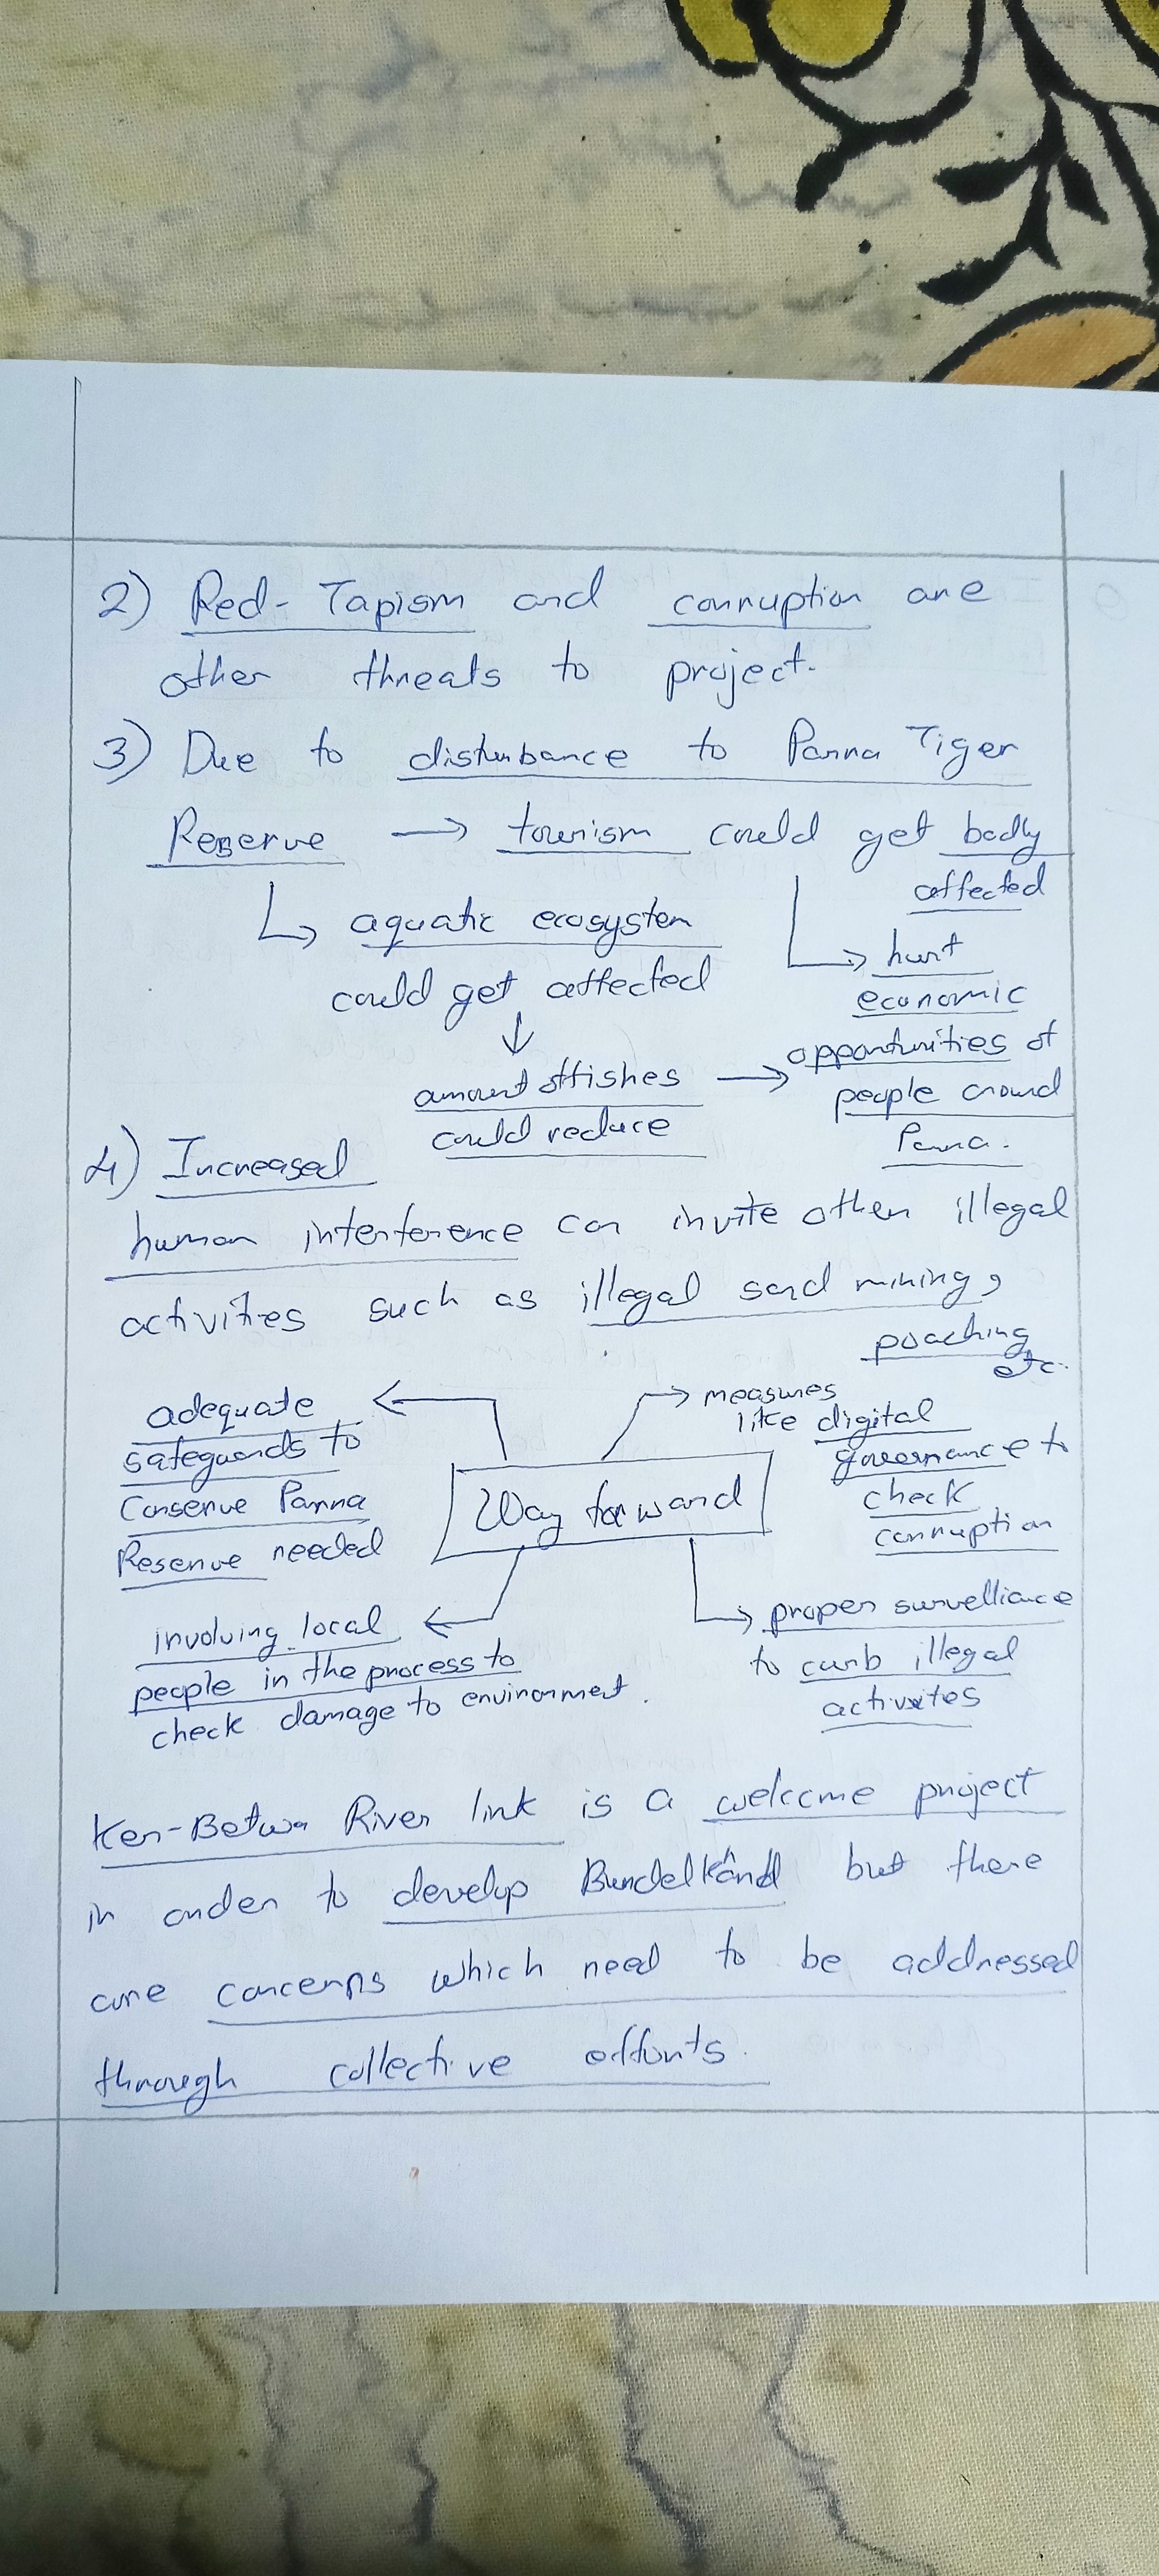 2) Red-Tapism and corruption are
other threats to project.
3) Due to disturbance to Panna Tiger
Reserve → tourism could get badly
affected
↳ aquatic ecosystem
could get affected
↳ hurt
economic
opportunities of
people around
Panna.
↓
amount of fishes →
could reduce
4) Increased
human interference can invite other illegal
activities such as illegal sand mining,
poaching
etc.
adequate
safeguards to
Conserve Panna
Reserve needed
measures
like digital
governance to
check
corruption
Way forward
involving local
people in the process to
check damage to environment.
proper survelliance
to curb illegal
activites
Ken-Betwa River link is a welcome project
in order to develop Bundelkhand but there
are concerns which need to be addressed
through collective efforts.